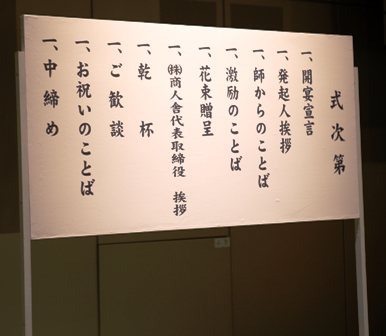 式次第
一、開宴宣言
一、発起人挨拶
一、師からのことば
一、激励のことば
一、花束贈呈
一、㈱商人舎代表取締役 挨拶
一、乾杯
一、ご歓談
一、お祝いのことば
一、中締め